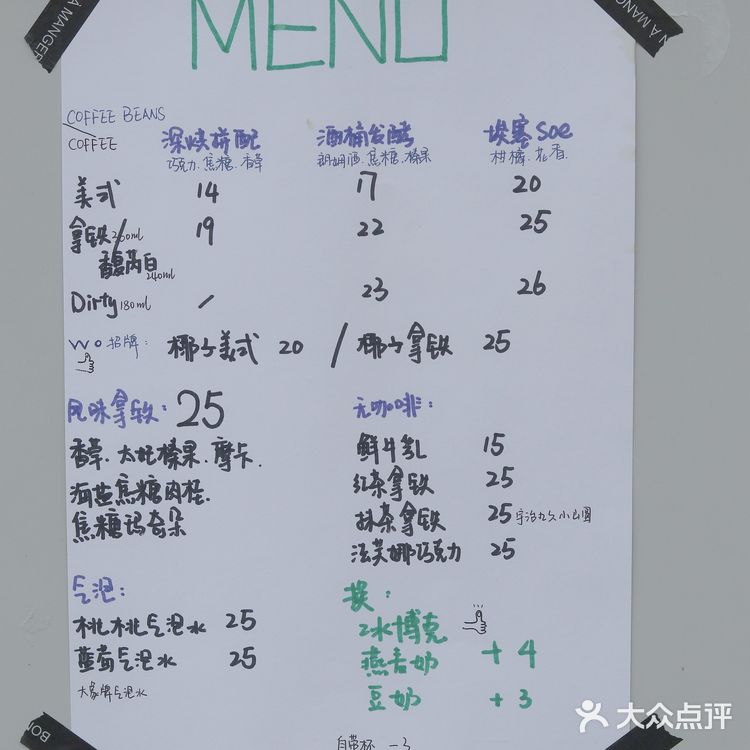 MENU
COFFEE BEANS
COFFEE 深烘拼配 酒桶发酵 埃塞soe
巧克力.焦糖.香草 朗姆酒.焦糖.榛果 柑橘.花香.
美式 14 17 20
拿铁/260ml 19 22 25
馥芮白240ml
Dirty180ml / 23 26
WO招牌: 椰子美式 20 / 椰子拿铁 25
风味拿铁: 25 无咖啡:
香草.太妃榛果.摩卡. 鲜牛乳 15
海盐焦糖肉桂. 红茶拿铁 25
焦糖玛奇朵 抹茶拿铁 25宇治丸久小山園
法芙娜巧克力 25
气泡: 换:
桃桃气泡水 25 冰博克
蓝莓气泡水 25 燕麦奶 +4
大象牌气泡水 豆奶 +3
自带杯 -3
大众点评